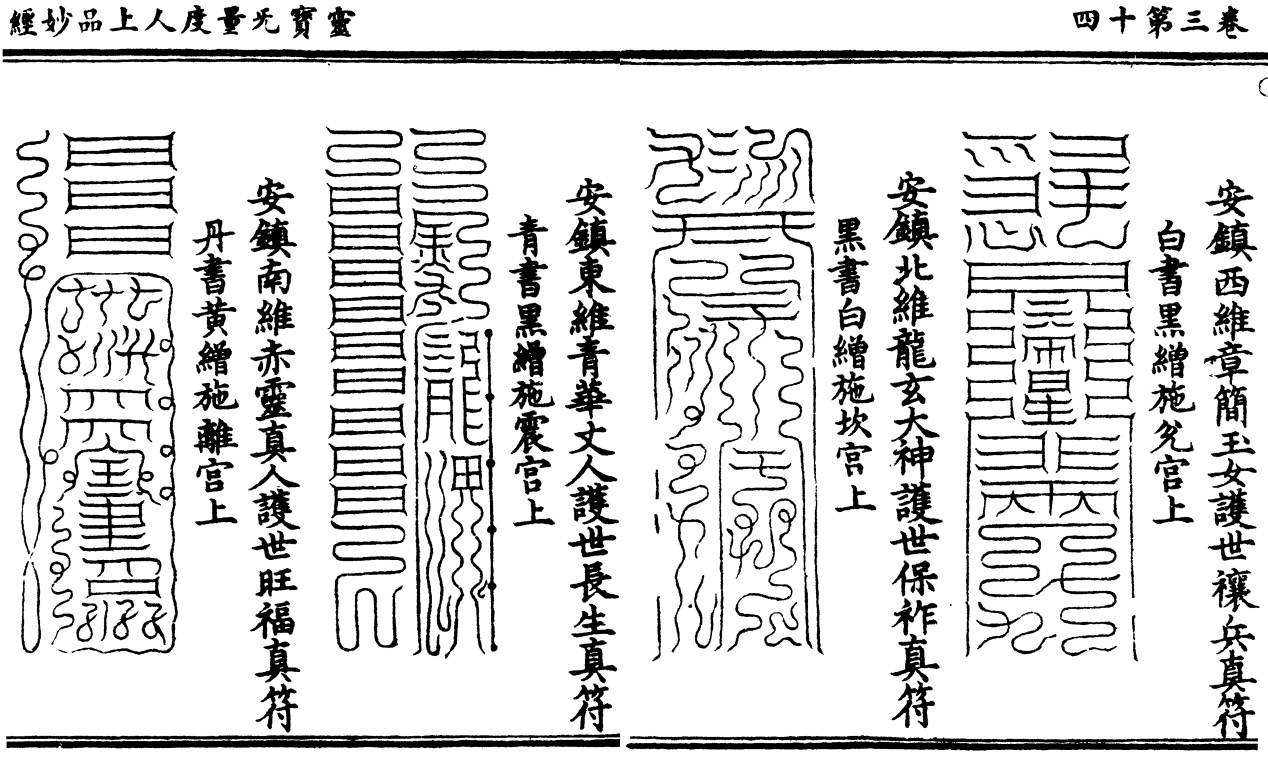 卷三第十四
靈寶无量度人上品妙經
安鎮西維章簡玉女護世禳兵真符
白書黑繒施兌宮上
安鎮北維龍玄大神護世保祚真符
黑書白繒施坎宮上
安鎮東維青華丈人護世長生真符
青書黑繒施震宮上
安鎮南維赤靈真人護世旺福真符
丹書黄繒施離宮上